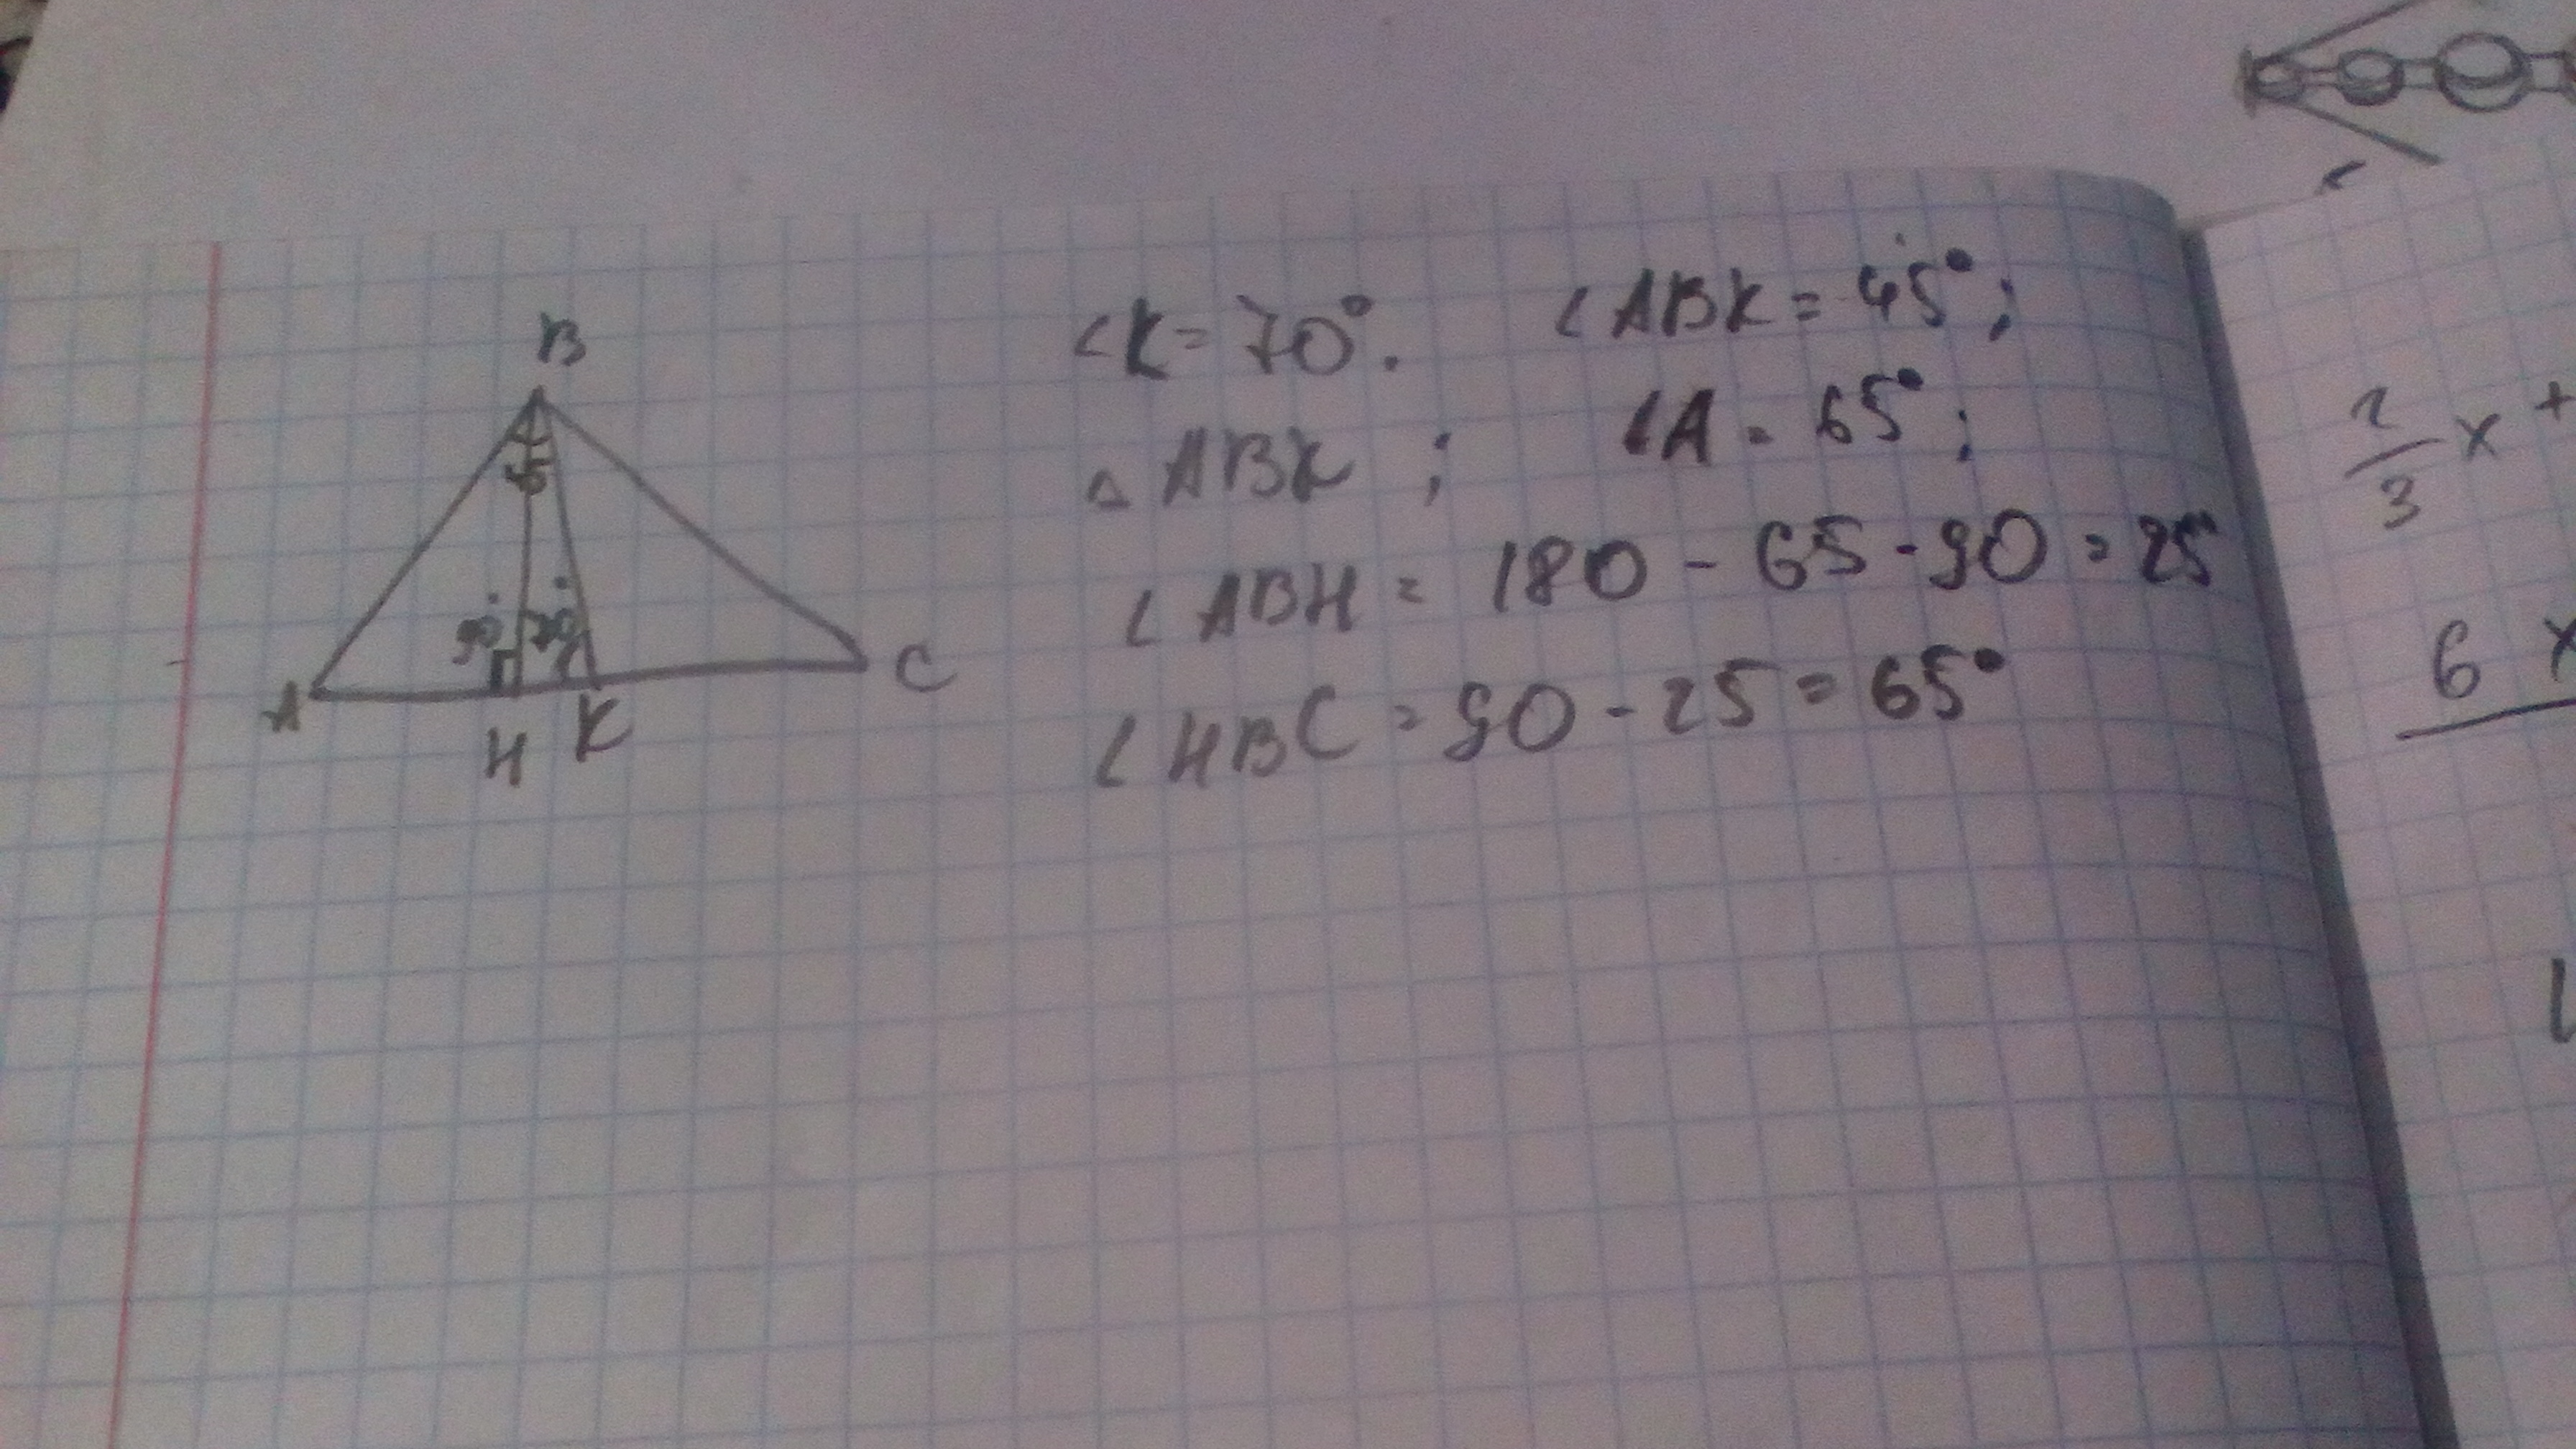 B
45
90° 70°
A H K C
∠K = 70°. ∠ABK = 45°;
△ABK ; ∠A = 65°;
∠ABH = 180 - 65 - 90 = 25°
∠HBC = 90 - 25 = 65°
2/3 x +
6 x